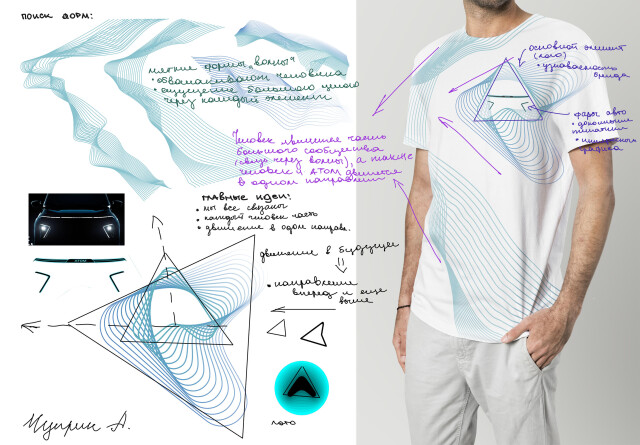 поиск форм:
мягкие формы "волны"
• обволакивают человека
• ощущение большого целого
через каждый элемент
Человек является часть
большого сообщества
(связь через волны), а также
человек и АТОМ движется
в одном направлении
основной элемент
(лого)
• узнаваемость
бренда
фары авто
• дополнение
тематики
графика
главные идеи:
• мы все связаны
• каждый человек часть
• движение в одном направ.
движение в будущее
• направление
вперед и еще
выше
лого
А.